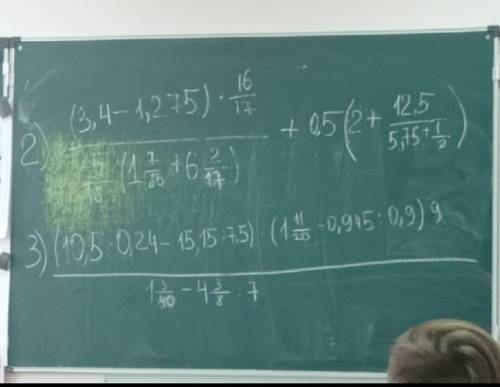 2) \frac{(3,4-1,275) \cdot \frac{16}{17}}{\frac{5}{18} \cdot (1\frac{7}{85} + 6\frac{2}{17})} + 0,5 (2 + \frac{12,5}{5,75 + \frac{1}{2}})
3) \frac{(10,5 \cdot 0,24 - 15,15 : 7,5) \cdot (1\frac{11}{20} - 0,945 : 0,9) 9}{1\frac{3}{40} - 4\frac{3}{8} : 7}